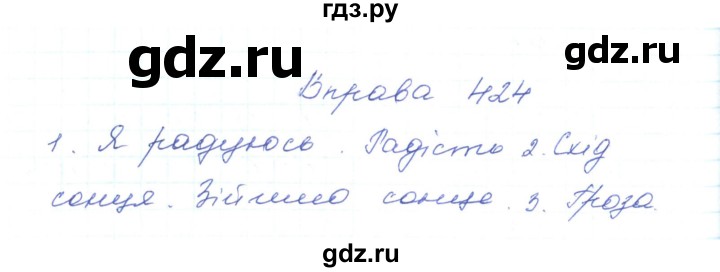 гдз.ру
gdz.ru gdz.ru
Вправа 424
1. Я радуюсь. Радісто 2. Схід
сонця. Зійшло сонце. 3. Гроза.
gdz.ru